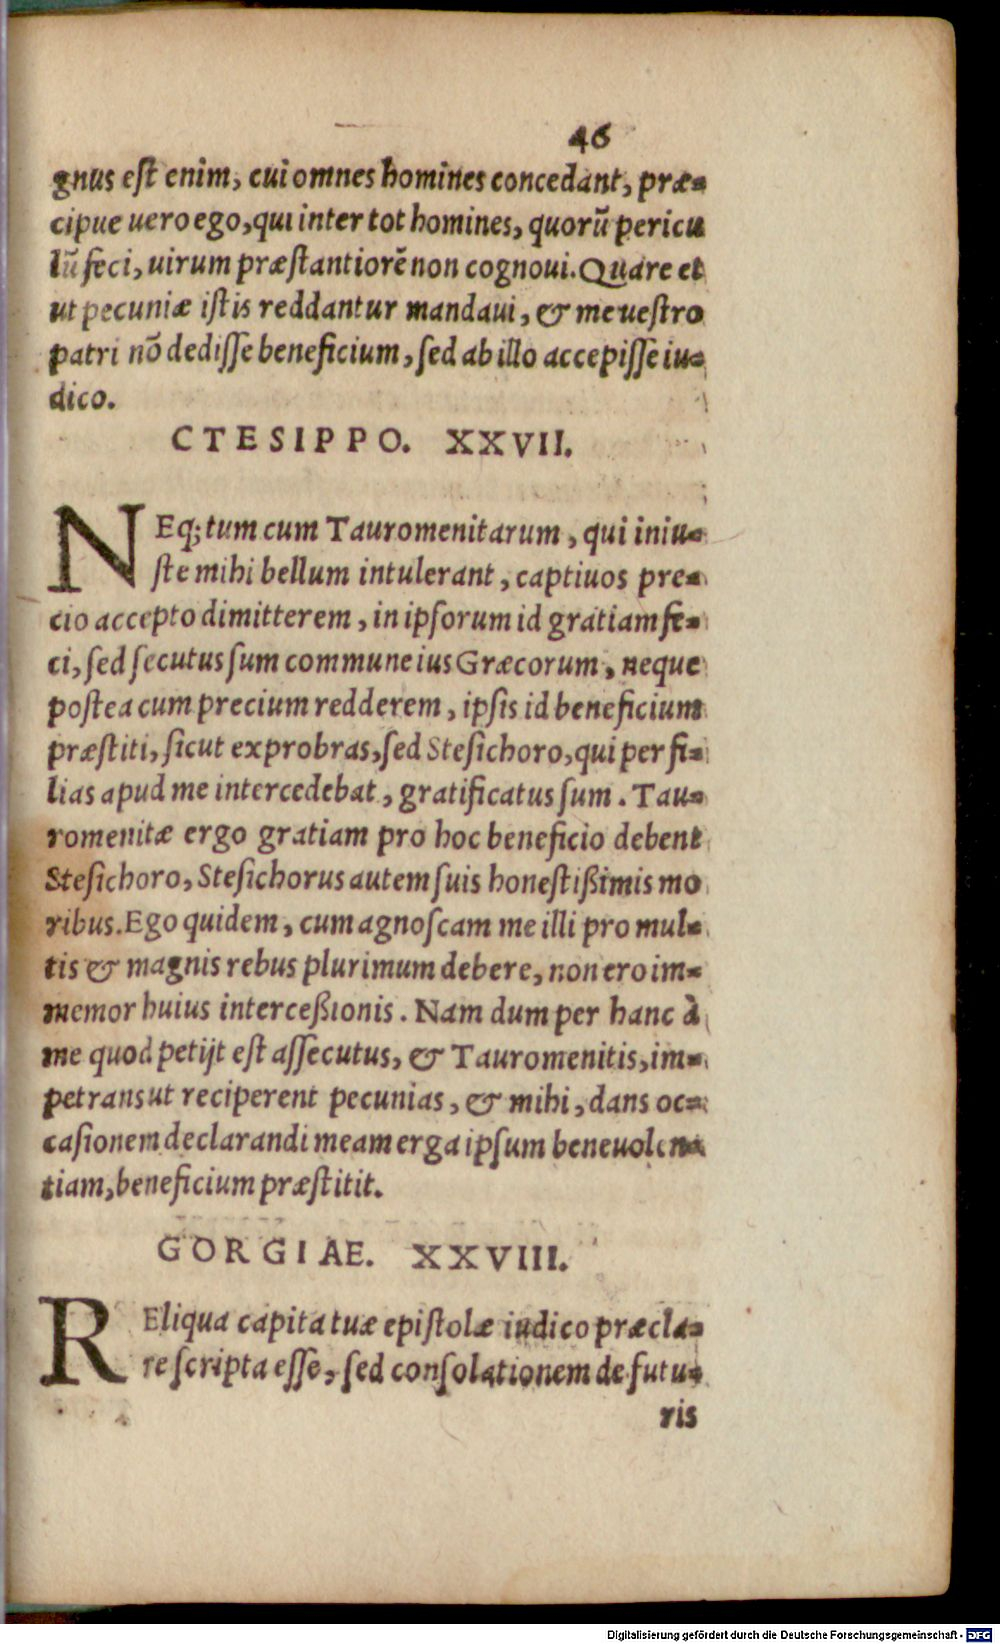 46
gnus est enim, cui omnes homines concedant, præ-
cipue uero ego, qui inter tot homines, quorũ pericu
lũ feci, uirum præstantiorẽ non cognoui. Quare et
ut pecuniæ istis reddantur mandaui, & me uestro
patri nõ dedisse beneficium, sed ab illo accepisse iu-
dico.
CTESIPPO. XXVII.
NEq; tum cum Tauromenitarum, qui iniu-
ste mihi bellum intulerant, captiuos pre-
cio accepto dimitterem, in ipsorum id gratiam fe-
ci, sed secutus sum commune ius Græcorum, neque
postea cum precium redderem, ipsis id beneficium
præstiti, sicut exprobras, sed Stesichoro, qui per fi-
lias apud me intercedebat, gratificatus sum. Tau-
romenitæ ergo gratiam pro hoc beneficio debent
Stesichoro, Stesichorus autem suis honestißimis mo
ribus. Ego quidem, cum agnoscam me illi pro mul-
tis & magnis rebus plurimum debere, non ero im-
memor huius interceßionis. Nam dum per hanc à
me quod petijt est assecutus, & Tauromenitis, im-
petrans ut reciperent pecunias, & mihi, dans oc-
casionem declarandi meam erga ipsum beneuolen-
tiam, beneficium præstitit.
GORGIAE. XXVIII.
REliqua capita tuæ epistolæ iudico præcla-
re scripta esse, sed consolationem de futu-
ris
Digitalisierung gefördert durch die Deutsche Forschungsgemeinschaft - DFG